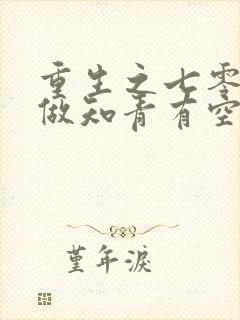 重生之七零
做知青有空
堇年淚